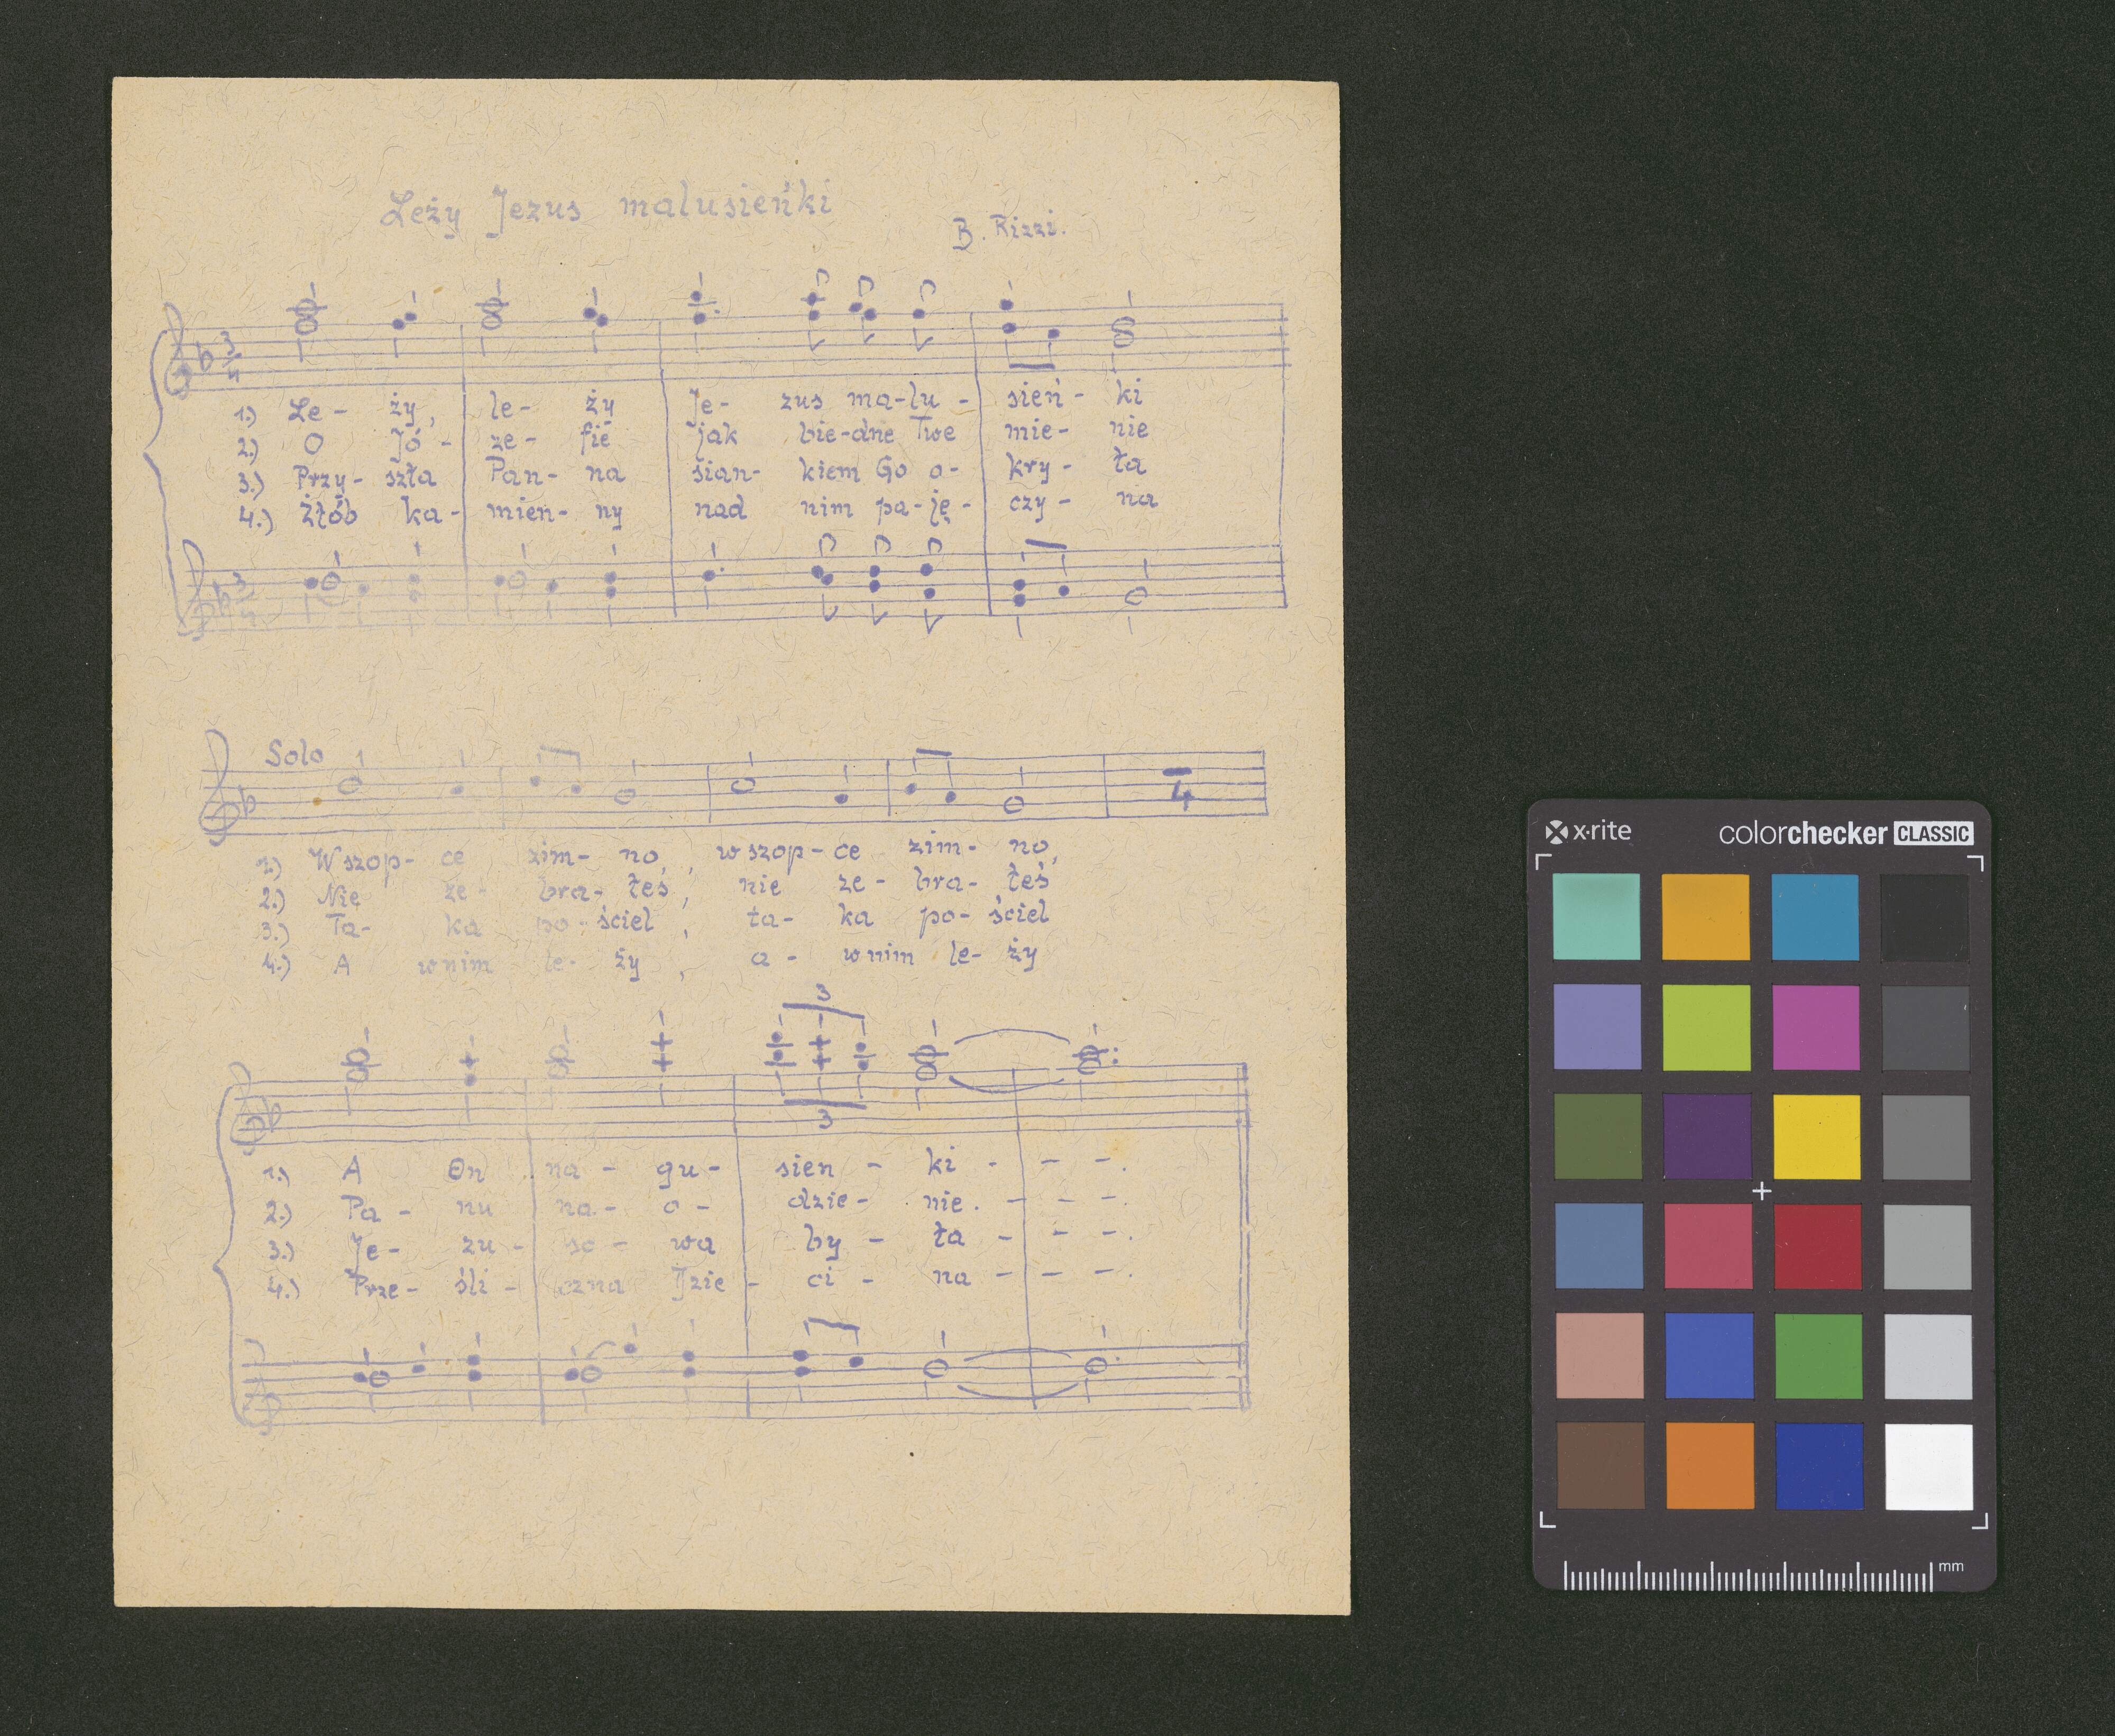 Leży Jezus malusieńki
B. Rizzi.
3/4
1.) Le- ży, le- ży Je- zus ma-lu- sień- ki
2.) O Jó- ze- fie jak bie-dne Twe mie- nie
3.) Przy- szła Pan- na sian- kiem Go o- kry- ta
4.) żłób ka- mien- ny nad nim pa-ję- czy- na
3/4
Solo
4
1.) W szop- ce zim- no, w szop- ce zim- no,
2.) Nie ze- bra- łeś, nie ze- bra- łeś
3.) Ta- ka po- ściel, ta- ka po- ściel
4.) A w nim le- ży, a- w nim le- ży
3
3
1.) A On na- gu- sien- ki - - -.
2.) Pa- nu na- o- dzie- nie. - - -.
3.) Je- zu- so- wa by- ła - - -.
4.) Prze- śli- czna Dzie- ci- na - - -.
x·rite colorchecker CLASSIC
mm